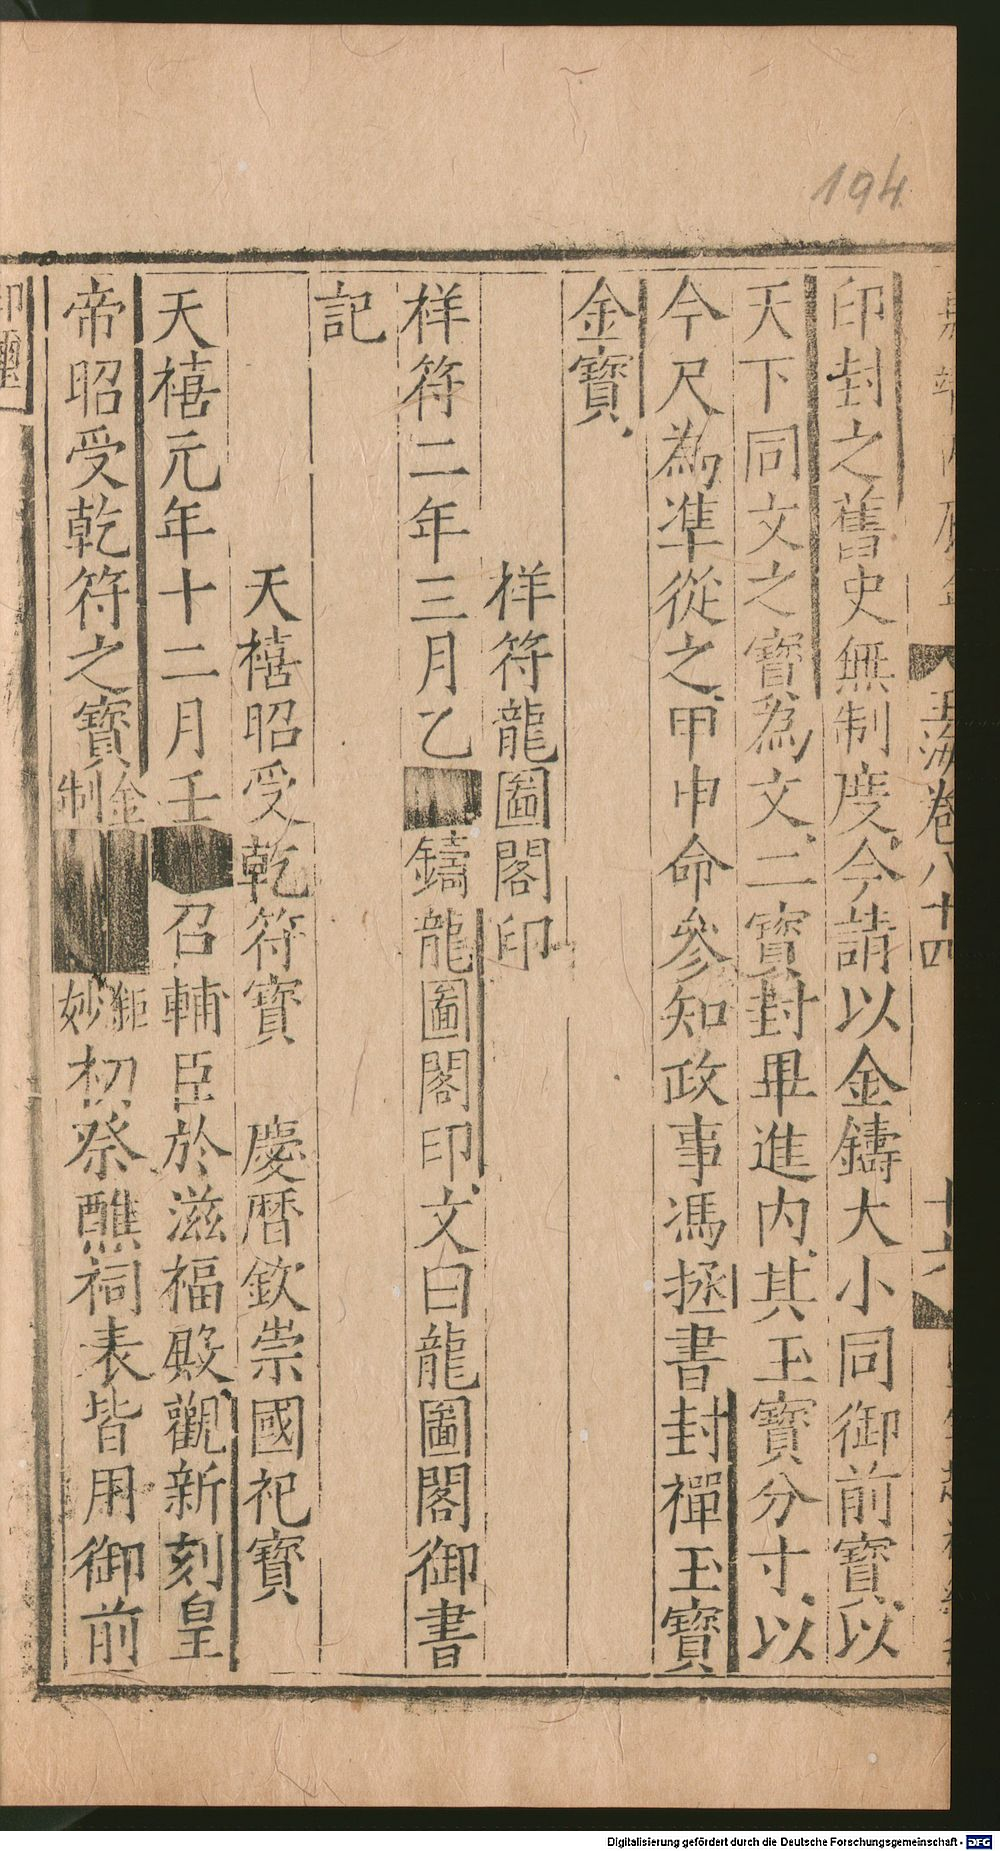 194
玉海卷八十四
十六
印封之舊史無制度今請以金鑄大小同御前寶以
天下同文之寶爲文二寶封畢進内其玉寶分寸以
今尺為凖從之甲申命參知政事馮拯書封禪玉寶
金寶
祥符龍圖閣印
祥符二年三月乙 鑄龍圖閣印文曰龍圖閣御書
記
天禧昭受乾符寶 慶曆欽崇國祀寶
天禧元年十二月壬 召輔臣於滋福殿觀新刻皇
帝昭受乾符之寶金制 妙初祭醮祠表皆用御前
印璽
Digitalisierung gefördert durch die Deutsche Forschungsgemeinschaft - DFG